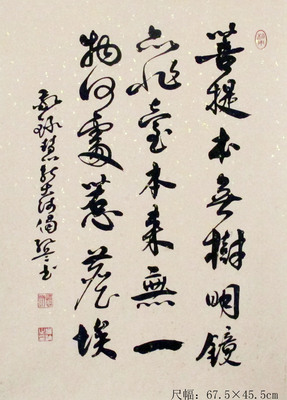 菩提本無樹明鏡
亦非臺本來無一
物何處惹塵埃
敬録慧能大师偈书
尺幅: 67.5×45.5cm